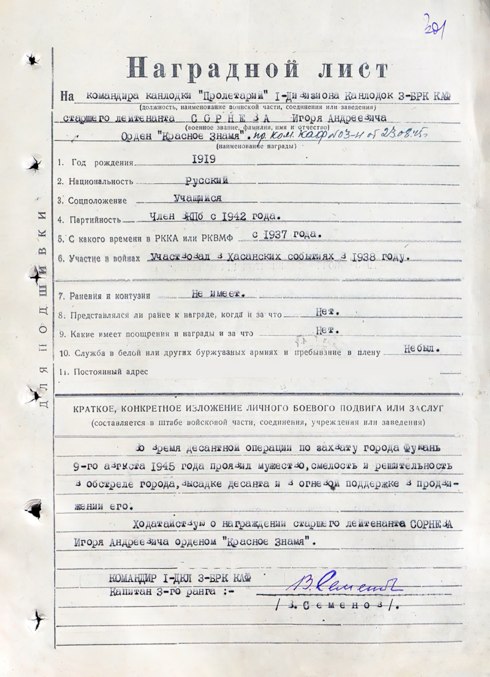 201
Наградной лист
На командира канлодки "Пролетарий" I-Дивизиона Канлодок 3-БРК КАФ
(должность, наименование воинской части, соединения или заведения)
старшего лейтенанта СОРНЕВА Игоря Андреевича
(военное звание, фамилия, имя и отчество)
Орден "Красное Знамя". пр. ком. КАФ № 03-н от 23.08.45г.
(наименование награды)
1. Год рождения 1919
2. Национальность Русский
3. Соцположение Учащийся
4. Партийность Член ВКПб с 1942 года.
5. С какого времени в РККА или РКВМФ с 1937 года.
6. Участие в войнах Участвовал в Хасанских событиях в 1938 году.
7. Ранения и контузии Не имеет.
8. Представлялся ли ранее к награде, когда и за что Нет.
9. Какие имеет поощрения и награды и за что Нет.
10. Служба в белой или других буржуазных армиях и пребывание в плену Небыл.
11. Постоянный адрес
ДЛЯ ПОДШИВКИ
КРАТКОЕ, КОНКРЕТНОЕ ИЗЛОЖЕНИЕ ЛИЧНОГО БОЕВОГО ПОДВИГА ИЛИ ЗАСЛУГ
(составляется в штабе войсковой части, соединения, учреждения или заведения)
Во время десантной операции по захвату города Фуюань
9-го августа 1945 года проявил мужество, смелость и решительность
в обстреле города, высадке десанта и в огневой поддержке в продви-
жении его.
Ходатайствую о награждении старшего лейтенанта СОРНЕВА
Игоря Андреевича орденом "Красное Знамя".
КОМАНДИР I-ДКЛ 3-БРК КАФ
Капитан 3-го ранга :-
В. Семенов
/В. СЕМЕНОВ/.